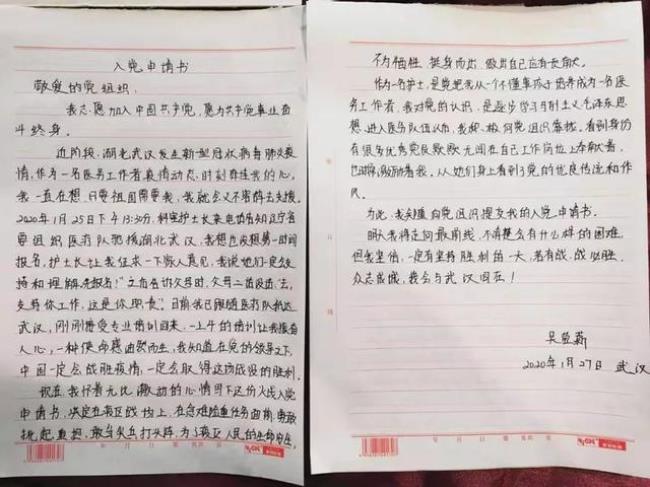 入党申请书
敬爱的党组织:
我志愿加入中国共产党,愿为共产党事业奋
斗终身。
近阶段,湖北武汉发生新型冠状病毒肺炎疫
情,作为一名医务工作者疫情动态,时刻牵挂我的心。
我一直在想,只要祖国需要我,我就会义不容辞去支援。
2020年1月25日下午13:30分,科室护士长来电话告知辽宁省
要组织医疗队驰援湖北武汉,我想也没想第一时间
报名,护士长让我征求一下家人意见,我说他们一定会支
持和理解,先报名!"之后告诉父母时,父母二话没说"去,
支持你工作,这是你职责"。目前我已跟随医疗队抵达
武汉,刚刚接受专业培训回来,一上午的培训让我振奋
人心,一种使命感油然而生,我知道在党的领导之下,
中国一定会战胜疫情,一定会取得这场战役的胜利。
现在,我怀着无比激动的心情写下这份火线入党
申请书,决定在疫区战场上,在急难险重任务面前,勇敢
挑起重担,敢当尖兵打头阵,为了疫区人民的生命安危
不怕牺牲,挺身而出,做出自己应有贡献。
作为一名护士,是党把我从一个不懂事孩子培养成为一名医
务工作者,我对党的认识,是逐步学习马列主义毛泽东思
想,进入医务队伍以后,我积极向党组织靠拢。看到身份
有很多优秀党员默默无闻在自己工作岗位上奉献着,
也时常激励着我。从他们身上看到了党的优良传统和作
风。
为此,我郑重向党组织提交我的入党申请书。
明天我将走向最前线,不管想会有什么样的困难
但我坚信,一定有坚持胜利的一天,若有战,战必胜。
众志成城,我会与武汉同在!
2020年1月27日 武汉